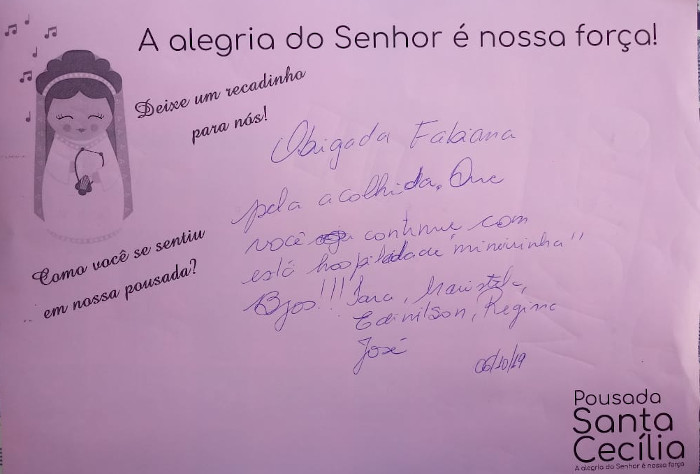 A alegria do Senhor é nossa força!
Deixe um recadinho
para nós!
Obrigada Fabiana
pela acolhida. Que
você continue com
está hospitalidade "mineirinha"
Bjos!!! Sara, Maristela,
Edinilson, Regina
José
06/10/19
Como você se sentiu
em nossa pousada?
Pousada
Santa
Cecília
A alegria do Senhor é nossa força